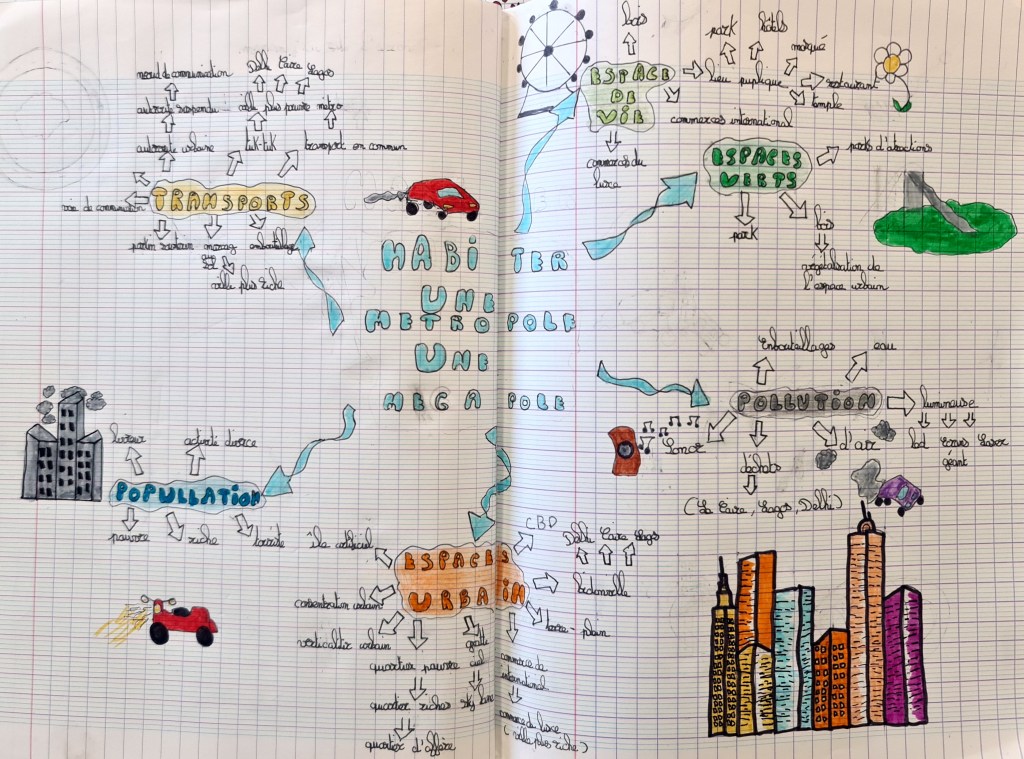 HABITER
UNE
METROPOLE
UNE
MEGAPOLE
TRANSPORTS
autoroute urbaine
autoroute suspendu
nœud de communication
tuk-tuk
ville plus pauvre
Delhi Caire Lagos
transport en commun
métro
voie de communication
embouteillage
ville plus riche
ESPACE
DE
VIE
bois
lieu puplique
park
hôtels
mosqué
restaurant
temple
commerces international
commerces du
luxe
ESPACES
VERTS
parks d'atractions
park
bois
végétalisation de
l'espace urbain
POLLUTION
Enbouteillages
eau
lumineuse
led
Ecrans
géant
Laser
d'air
déchets
(Le Caire, Lagos, Delhi)
Sonor
POPULLATION
livreur
activité diverce
pauvre
riche
touriste
ESPACES
URBAIN
île artificiel
CBD
Delhi Caire Lagos
bidonville
terre-plain
concentration urbain
verticalité urbain
quartier pauvre
quartier riches
quartier d'affaire
gratte
ciel
sky line
commerce de
international
commerce de luxe
(ville plus riche)